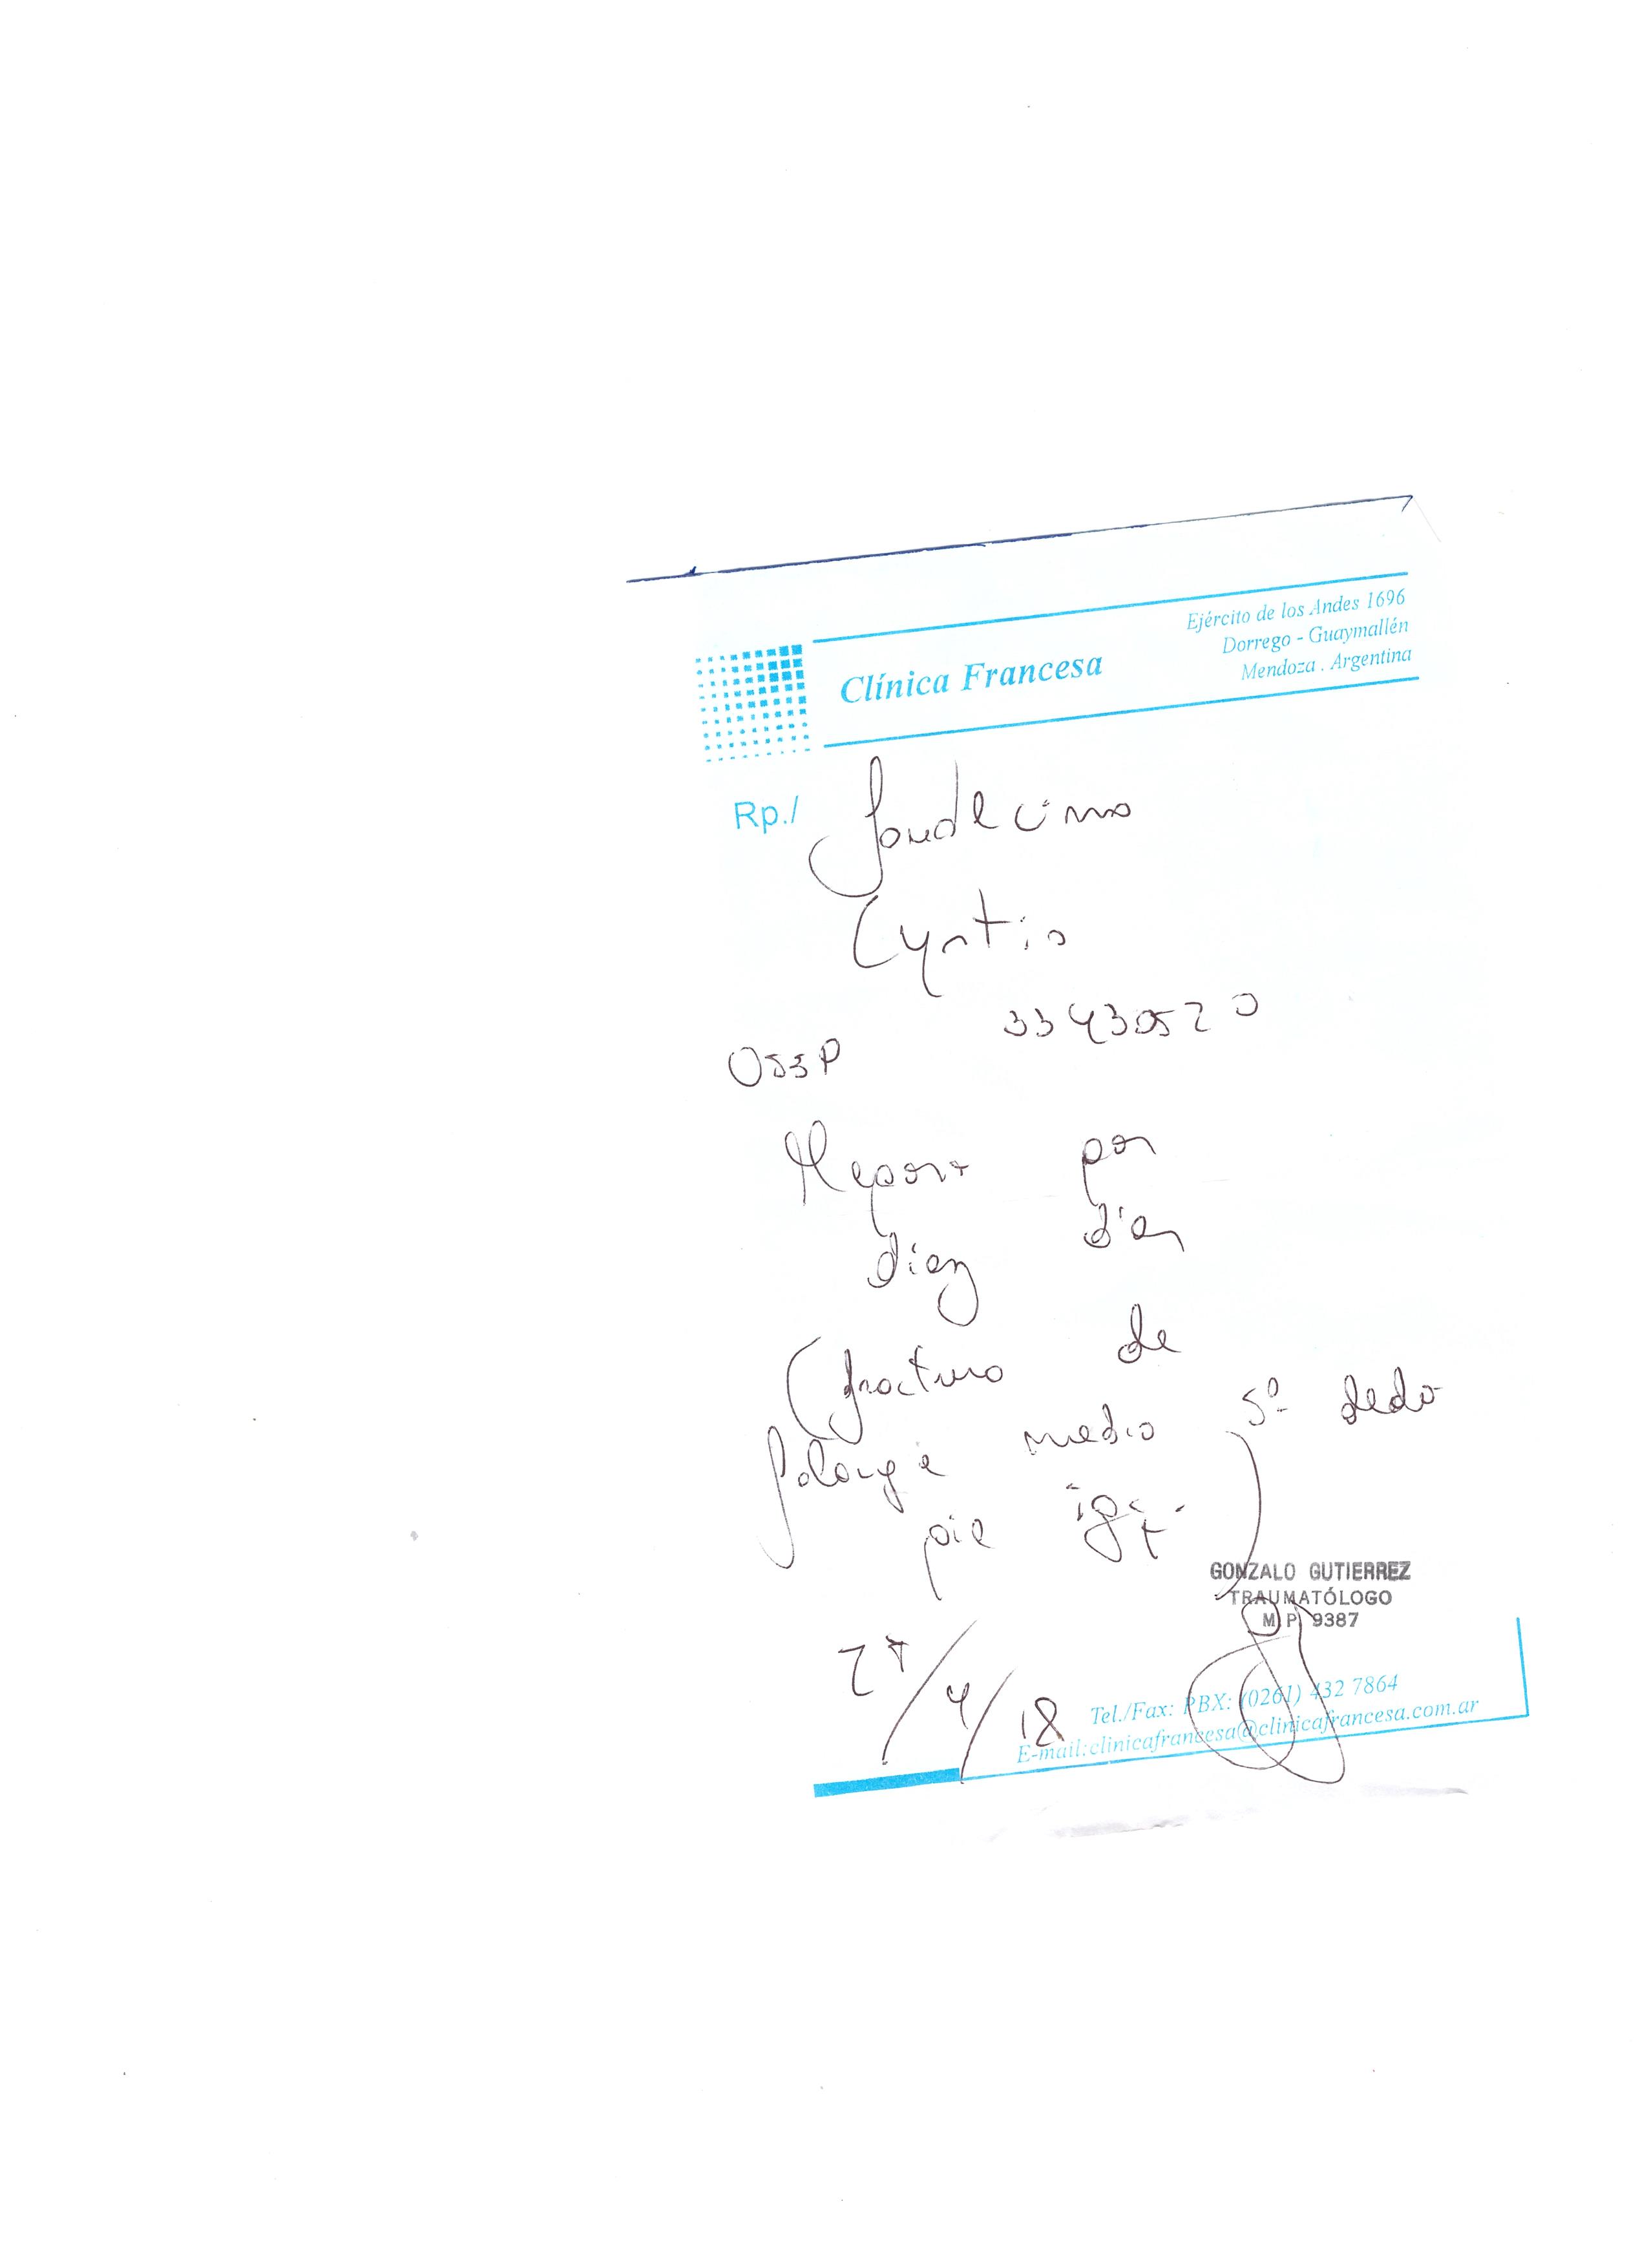 Clínica Francesa
Ejército de los Andes 1696
Dorrego - Guaymallén
Mendoza . Argentina
Rp./
Cyntia
33430520
OSSP
Reposo por
diez días
(fractura de
falange media 5º dedo
pie izq.)
GONZALO GUTIERREZ
TRAUMATÓLOGO
M P. 9387
27/4/18
Tel./Fax: PBX: (0261) 432 7864
E-mail:clinicafrancesa@clinicafrancesa.com.ar